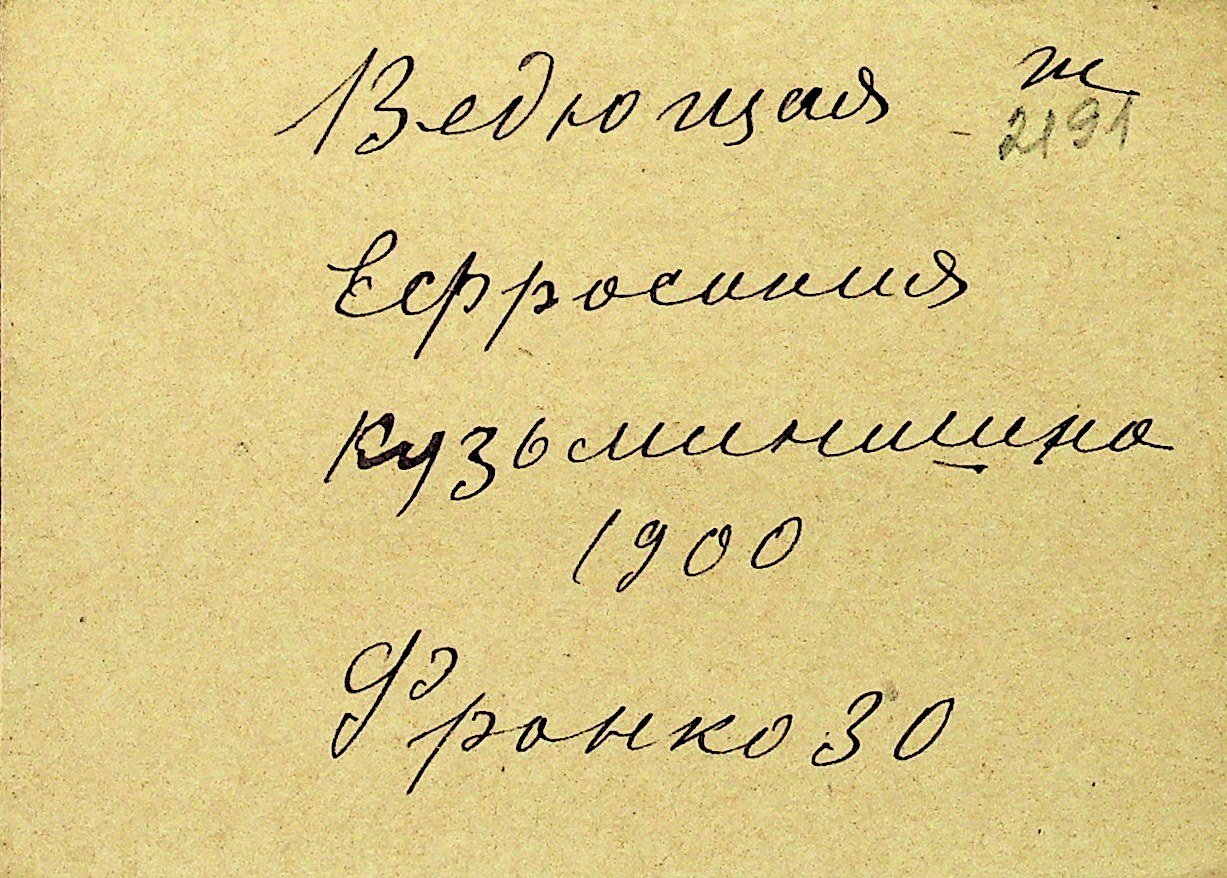 Ведющая
2191
Ефросиния
Кузьминишна
1900
Франко 30